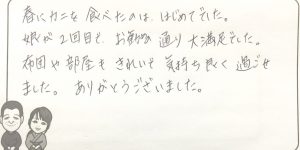 春にカニを食べたのは、はじめてでした。
娘が2回目で、お勧め通り大満足でした。
布団や部屋もきれいで気持ち良く過ごせ
ました。ありがとうございました。